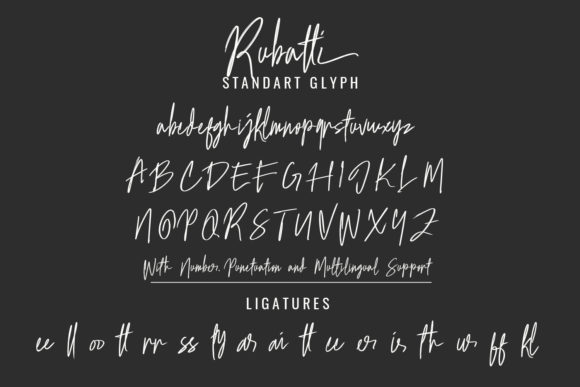 Rubatti
STANDART GLYPH
abcdefghijklmnopqrstuvwxyz
ABCDEFGHIJKLM
NOPQRSTUVWXYZ
With Number, Punctuation and Multilingual Support
LIGATURES
ee ll oo tt rr ss ty ar ai tt ee er is th ur ff kl